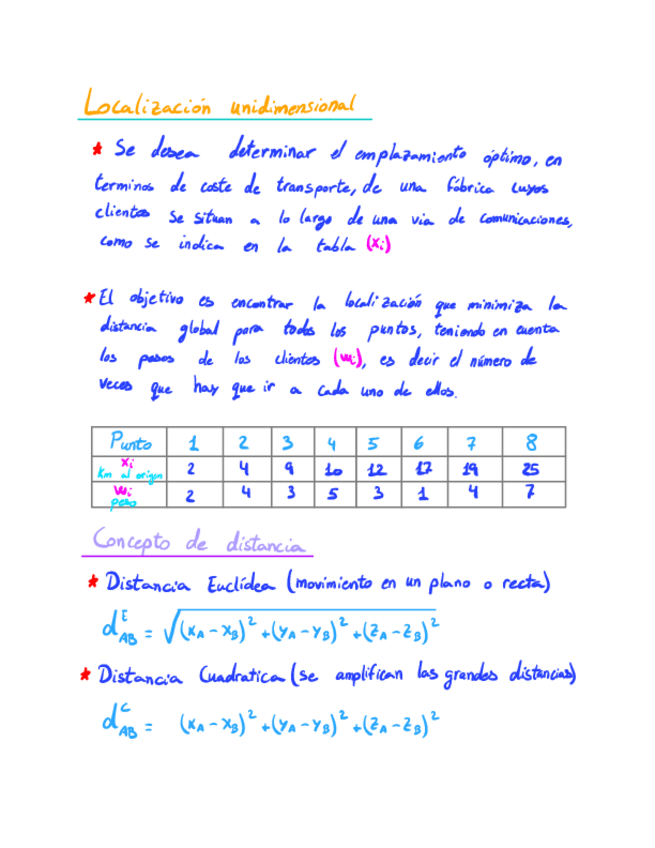 Localización unidimensional
* Se desea determinar el emplazamiento óptimo, en
terminos de coste de transporte, de una fábrica cuyos
clientes se situan a lo largo de una via de comunicaciones,
como se indica en la tabla (xi)
* El objetivo es encontrar la localización que minimiza la
distancia global para todos los puntos, teniendo en cuenta
los pesos de los clientes (wi), es decir el número de
veces que hay que ir a cada uno de ellos.
Punto 1 2 3 4 5 6 7 8
xi
km al origen 2 4 9 10 12 17 19 25
wi
peso 2 4 3 5 3 1 4 7
Concepto de distancia
* Distancia Euclídea (movimiento en un plano o recta)
d^E_AB = √((xA - xB)^2 + (yA - yB)^2 + (zA - zB)^2)
* Distancia Cuadratica (se amplifican las grandes distancias)
d^C_AB = (xA - xB)^2 + (yA - yB)^2 + (zA - zB)^2